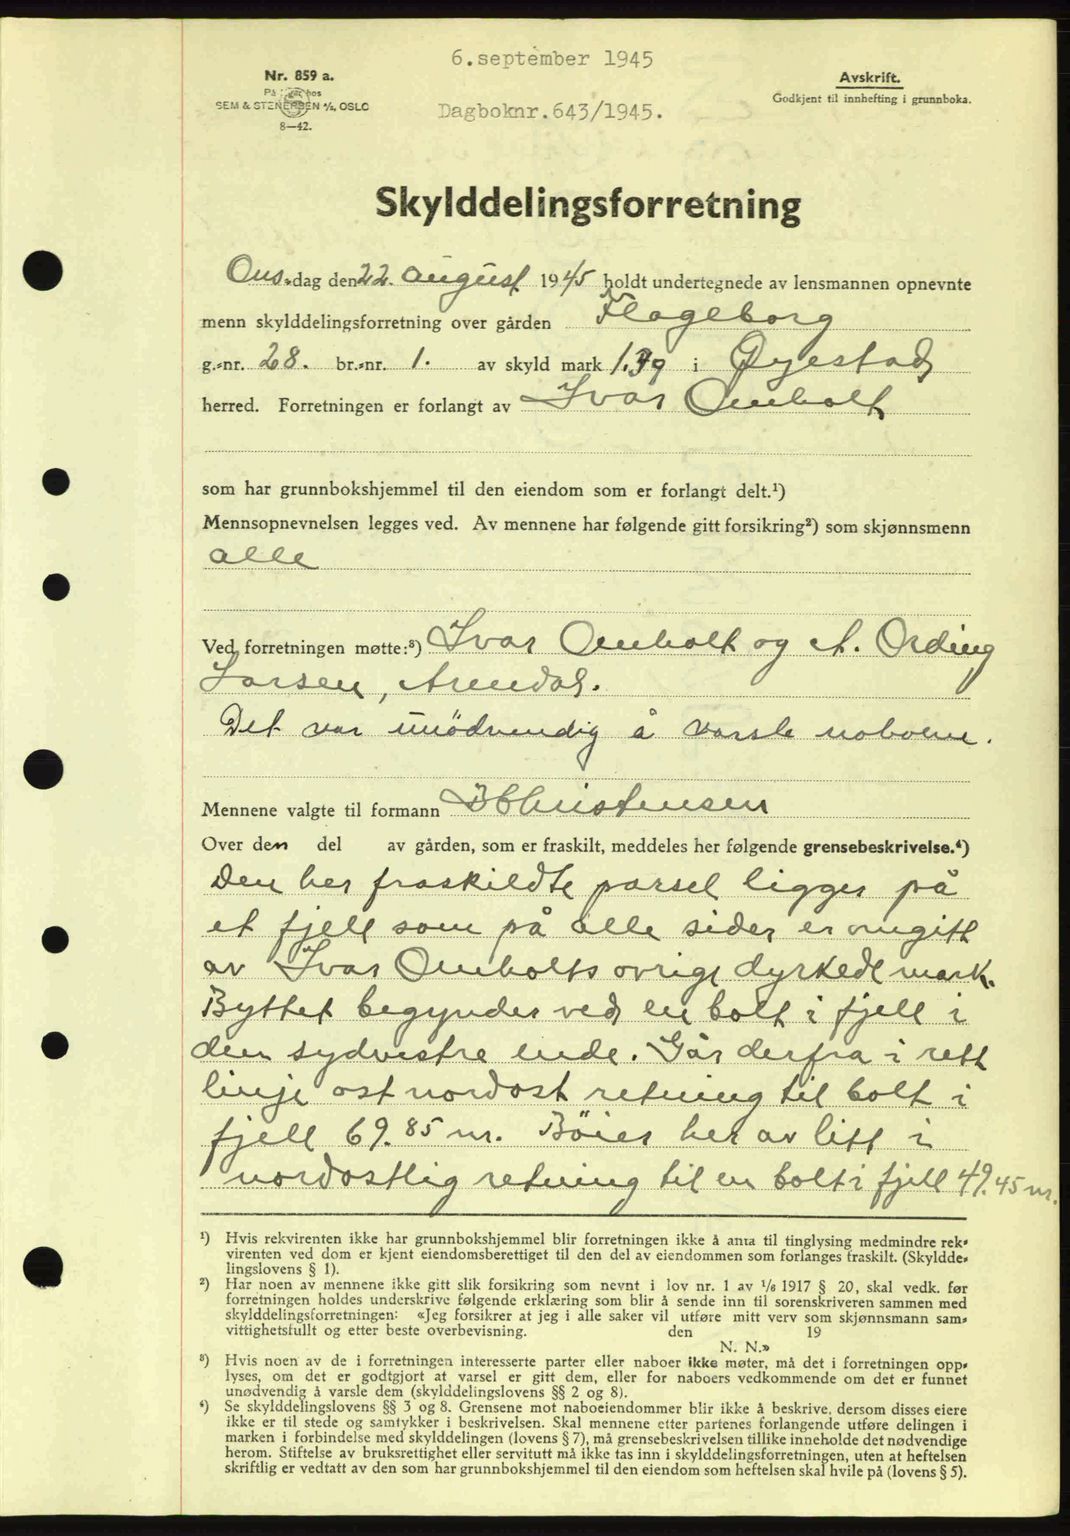 6.september 1945
Nr. 859 a.
Avskrift.
På hos
Godkjent til innhefting i grunnboka.
SEM & STENERSEN A/S, OSLO
Dagboknr.643/1945.
8—42.
Skylddelingsforretning
Ons-dag den 22. august 1945 holdt undertegnede av lensmannen opnevnte
menn skylddelingsforretning over gården Flageborg
g.-nr. 28. br.-nr. 1. av skyld mark 1.39 i Øyestad
herred. Forretningen er forlangt av Ivar Omholt
som har grunnbokshjemmel til den eiendom som er forlangt delt.¹)
Mennsopnevnelsen legges ved. Av mennene har følgende gitt forsikring²) som skjønnsmenn
alle
Ved forretningen møtte:³) Ivar Omholt og A. Ording
Larsen, Arendal.
Det var unödvendig å varsle naboene.
Mennene valgte til formann B Christensen
Over den del av gården, som er fraskilt, meddeles her følgende grensebeskrivelse.⁴)
Den her fraskildte parsel ligger på
et fjell som på alle sider er omgitt
av Ivar Omholts ovrige dyrkede mark.
Byttet begynder ved en bolt i fjell i
den sydvestre ende. Går derfra i rett
linje ost nordost retning til bolt i
fjell 69.85 m. Böier her av litt i
nordostlig retning til en bolt i fjell 49.45 m.
¹) Hvis rekvirenten ikke har grunnbokshjemmel blir forretningen ikke å anta til tinglysing medmindre rek-
virenten ved dom er kjent eiendomsberettiget til den del av eiendommen som forlanges fraskilt. (Skyldde-
lingslovens § 1).
²) Har noen av mennene ikke gitt slik forsikring som nevnt i lov nr. 1 av 1/6 1917 § 20, skal vedk. før
forretningen holdes underskrive følgende erklæring som blir å sende inn til sorenskriveren sammen med
skylddelingsforretningen: «Jeg forsikrer at jeg i alle saker vil utføre mitt verv som skjønnsmann sam-
vittighetsfullt og etter beste overbevisning. den 19
N. N.»
³) Hvis noen av de i forretningen interesserte parter eller naboer ikke møter, må det i forretningen opp-
lyses, om det er godtgjort at varsel er gitt dem, eller for naboers vedkommende om det er funnet
unødvendig å varsle dem (skylddelingslovens §§ 2 og 8).
⁴) Se skylddelingslovens §§ 3 og 8. Grensene mot naboeiendommer blir ikke å beskrive, dersom disses eiere
ikke er til stede og samtykker i beskrivelsen. Skal mennene etter partenes forlangende utføre delingen i
marken i forbindelse med skylddelingen (lovens § 7), må grensebeskrivelsen tillike inneholde det nødvendige
herom. Stiftelse av bruksrettighet eller servitutt må ikke tas inn i skylddelingsforretningen, uten at heftelsen
skriftlig er vedtatt av den som har grunnbokshjemmel til den eiendom som heftelsen skal hvile på (lovens § 5).